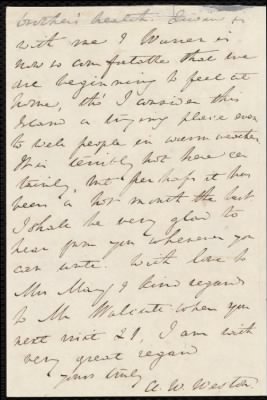 brother's health. Susan is
with me & Warren is
now so comfortable that we
are beginning to feel at
home, tho' I consider this
Island a trying place even
to well people in warm weather
It is terribly hot here cer
tainly, but perhaps it has
been a hot month the last
I shall be very glad to
hear from you whenever you
can write. With love to
Mrs May & kind regards
to Mr Walcutt when you
next visit 21, I am with
very great regard
yours truly
A. W. Weston.